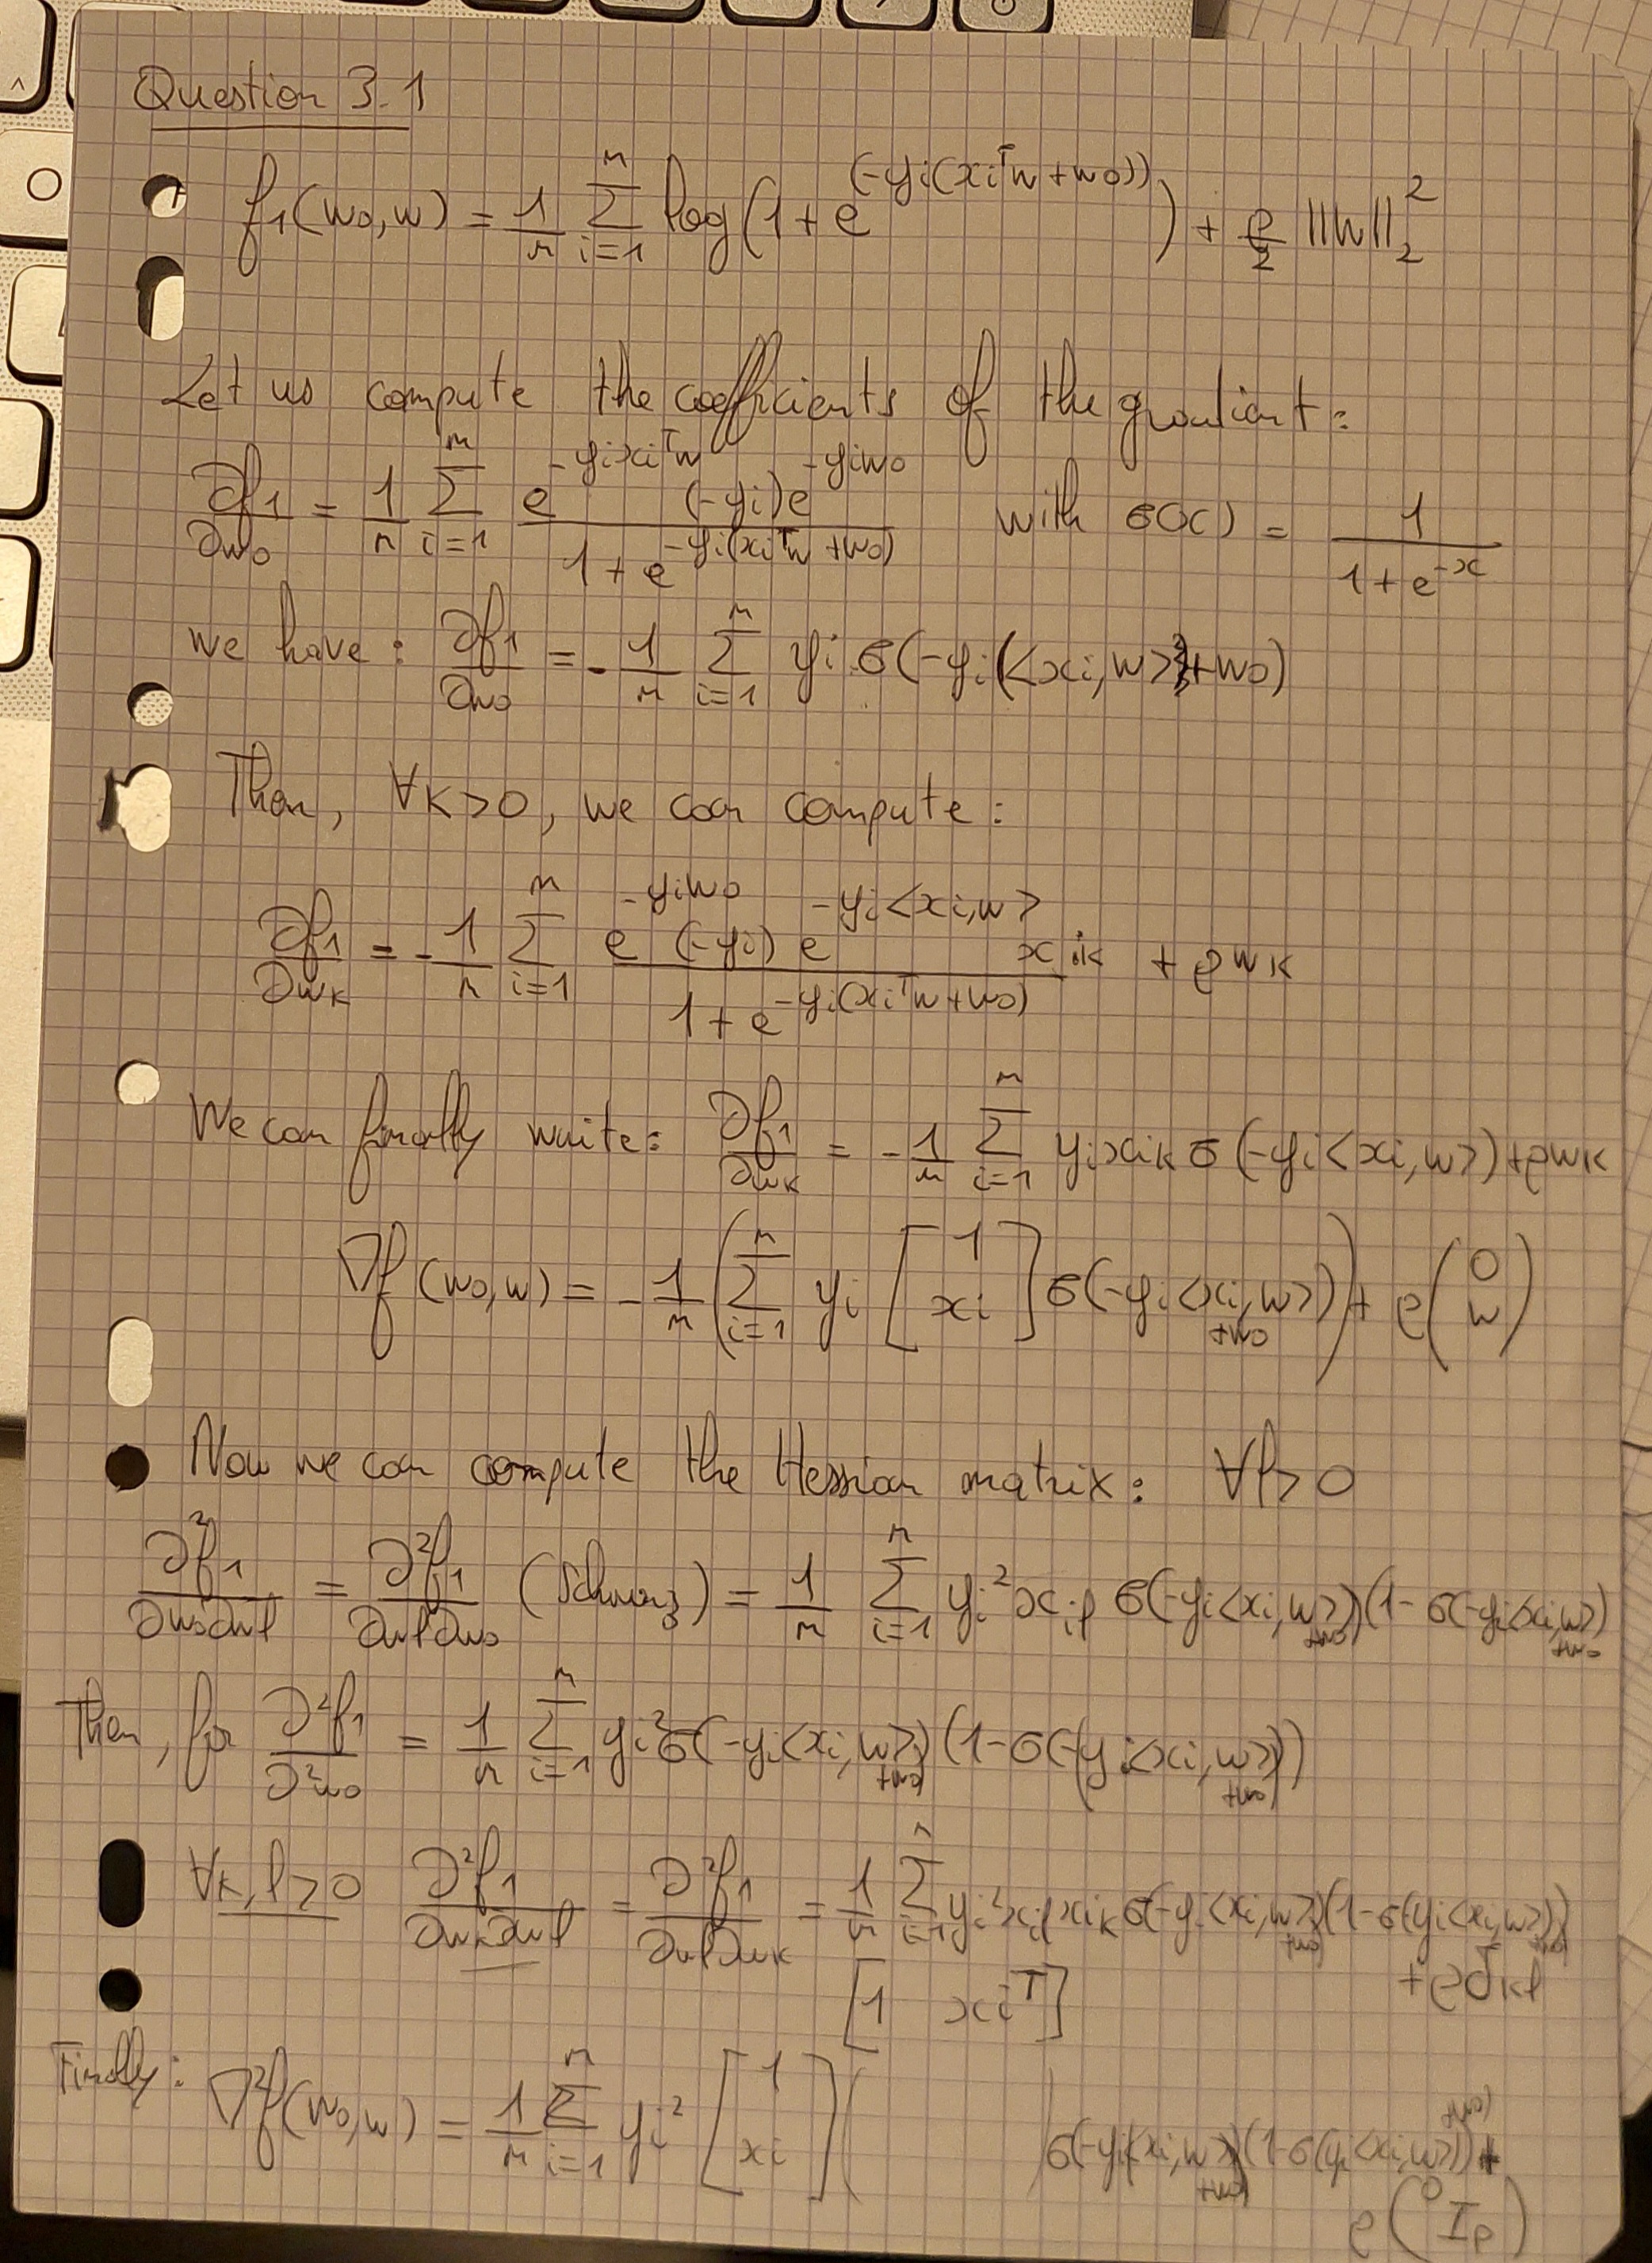 Question 3.1
f₁(w₀,w) = 1/n Σ_{i=1}^n log(1 + e^{(-yi(xiᵀw + w₀))}) + ρ/2 ||w||₂²
Let us compute the coefficients of the gradient:
∂f₁/∂w₀ = 1/n Σ_{i=1}^n e^{-yixiᵀw} (-yi) e^{-yiw₀} / (1 + e^{-yi(xiᵀw + w₀)}) with σ(x) = 1/(1 + e^{-x})
we have : ∂f₁/∂w₀ = - 1/n Σ_{i=1}^n yi σ(-yi(<xi,w> + w₀)
Then, ∀k>0, we can compute :
∂f₁/∂wk = - 1/n Σ_{i=1}^n e^{-yiw₀} (-yi) e^{-yi<xi,w>} xik / (1 + e^{-yi(xiᵀw + w₀)}) + ρwk
We can finally write : ∂f₁/∂wk = - 1/n Σ_{i=1}^n yi xik σ(-yi<xi,w>) + ρwk
∇f(w₀,w) = - 1/n (Σ_{i=1}^n yi [1 xi] σ(-yi<xi,w> +w₀)) + ρ(0 w)
Now we can compute the Hessian matrix : ∀l>0
∂²f₁/∂w₀∂wl = ∂²f₁/∂wl∂w₀ (Schwarz) = 1/n Σ_{i=1}^n yi² xil σ(-yi<xi,w> +w₀)(1 - σ(-yi<xi,w> +w₀)
Then, for ∂²f₁/∂²w₀ = 1/n Σ_{i=1}^n yi² σ(-yi<xi,w> +w₀)(1 - σ(-yi<xi,w> +w₀))
∀k,l>0 ∂²f₁/∂wk∂wl = ∂²f₁/∂wl∂wk = 1/n Σ_{i=1}^n yi² xil xik σ(-yi<xi,w> +w₀)(1 - σ(yi<xi,w> +w₀))
+ρδkl
[1 xiᵀ]
Finally : ∇²f(w₀,w) = 1/n Σ_{i=1}^n yi² [1 xi] ( ) σ(-yi(<xi,w> +w₀)(1 - σ(yi<xi,w> +w₀)) +
ρ(0 Ip)